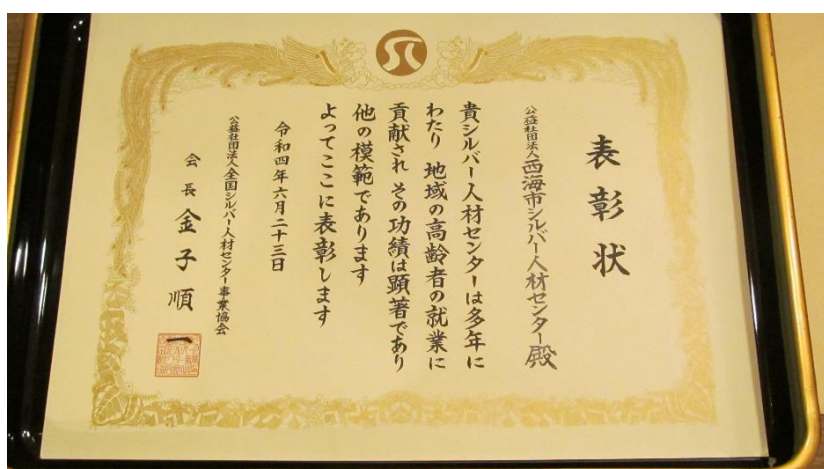 表彰状
公益社団法人西海市シルバー人材センター殿
貴シルバー人材センターは多年に
わたり 地域の高齢者の就業に
貢献され その功績は顕著であり
他の模範であります
よってここに表彰します
令和四年六月二十三日
公益社団法人全国シルバー人材センター事業協会
会長 金子順一